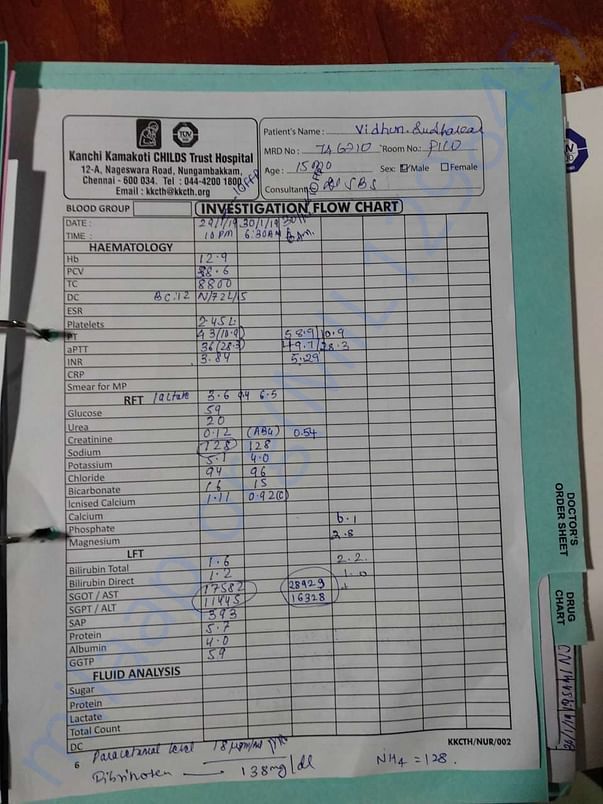 TUV
Kanchi Kamakoti CHILDS Trust Hospital
12-A, Nageswara Road, Nungambakkam,
Chennai - 600 034. Tel : 044-4200 1800
Email : kkcth@kkcth.org
Patient's Name : Vidhun. Sudhakar
MRD No : Room No.: PICU
Age : Sex: Male Female
Consultant SBS
BLOOD GROUP
INVESTIGATION FLOW CHART
DATE : 29/1/19 30/1/19
TIME : 10 PM 6:30AM
HAEMATOLOGY
Hb 12.9
PCV 38.6
TC 8800
DC N/72L/5
ESR
Platelets 2.45L
PT 43/10.9 58.9/10.9
aPTT 36/28.3 49.7/28.3
INR 3.84 5.29
CRP
Smear for MP
RFT lactate 3.6 6.5
Glucose 59
Urea 20
Creatinine 0.12 (ABG) 0.54
Sodium 128 128
Potassium 5.1 4.0
Chloride 94 96
Bicarbonate 16 15
Icnised Calcium 1.11 0.92(C)
Calcium
Phosphate 6.1
Magnesium 2.8
LFT
Bilirubin Total 1.6 2.2
Bilirubin Direct 1.2 1.0
SGOT / AST 17582 28929
SGPT / ALT 11445 16328
SAP 393
Protein 5.7
Albumin 4.0
GGTP 59
FLUID ANALYSIS
Sugar
Protein
Lactate
Total Count
DC
KKCTH/NUR/002
6
Paracetamol level 18
Fibrinogen 138mg/dl
NH4 = 128.
DOCTOR'S
ORDER SHEET
DRUG
CHART